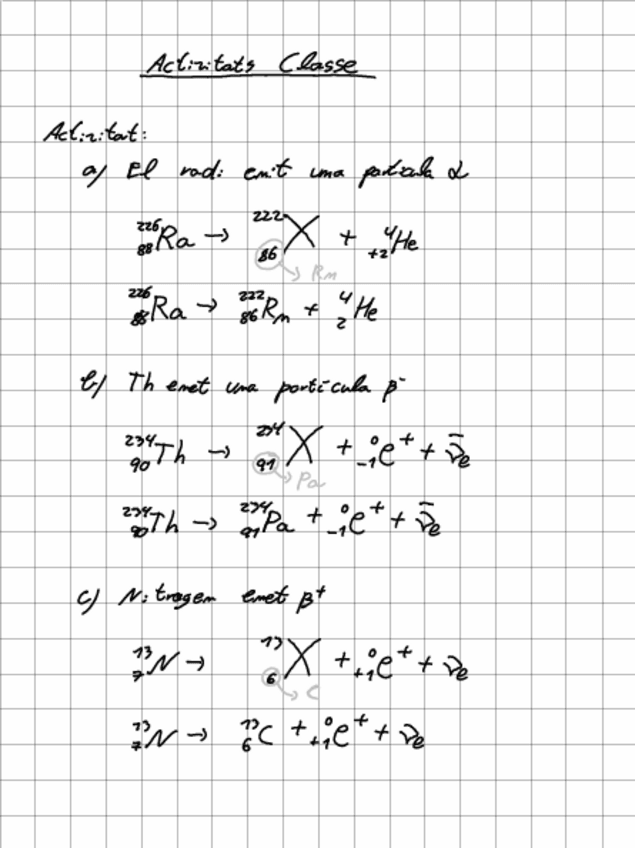 Activitats Classe
Activitat:
a) El radi emit una partícula α
²²⁶₈₈Ra → ²²²₈₆X + ⁴₊₂He
Rn
²²⁶₈₈Ra → ²²²₈₆Rn + ⁴₂He
b) Th emet una partícula β⁻
²³⁴₉₀Th → ²³⁴₉₁X + ⁰₋₁e⁺ + ν̄ₑ
Pa
²³⁴₉₀Th → ²³⁴₉₁Pa + ⁰₋₁e⁺ + ν̄ₑ
c) Nitrogen emet β⁺
¹³₇N → ¹³₆X + ⁰₊₁e⁺ + νₑ
C
¹³₇N → ¹³₆C + ⁰₊₁e⁺ + νₑ